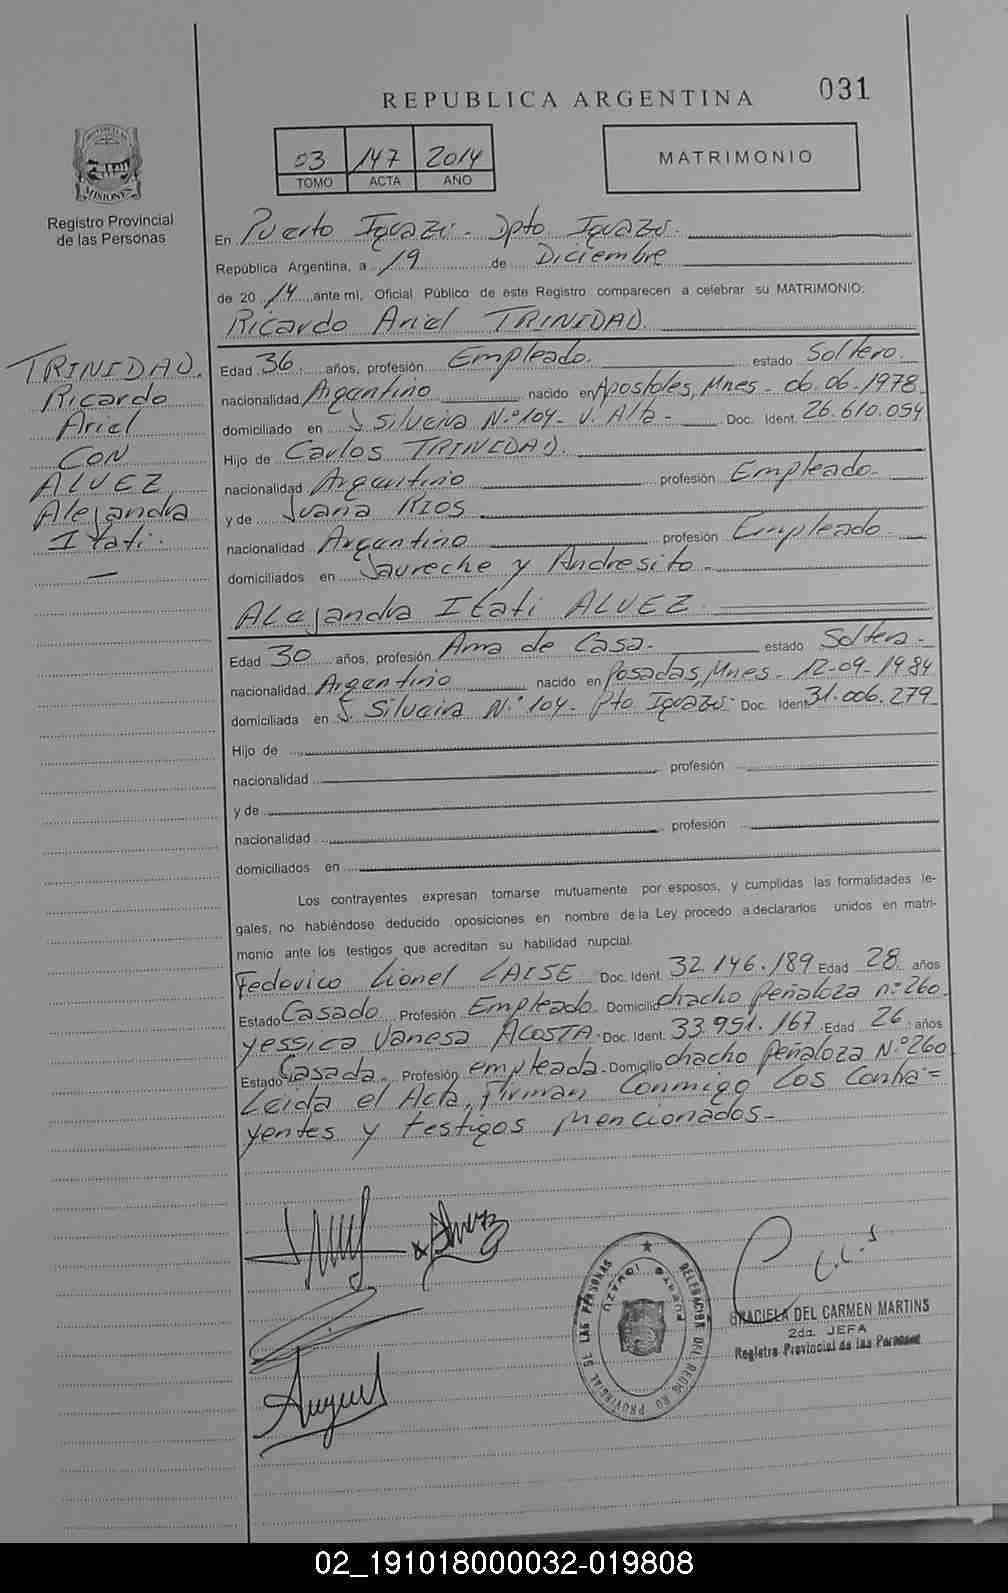 REPUBLICA ARGENTINA 031
03 147 2014
TOMO ACTA AÑO
MATRIMONIO
MISIONES
Registro Provincial
de las Personas
En Puerto Iguazú - Dpto. Iguazú.
República Argentina, a 19 de Diciembre
de 20 14 ante mí, Oficial Público de este Registro comparecen a celebrar su MATRIMONIO:
Ricardo Ariel TRINIDAD.
TRINIDAD.
Ricardo
Ariel
CON
ALVEZ
Alejandra
Itati.
Edad 36 años, profesión Empleado. estado Soltero.
nacionalidad Argentino nacido en Apostoles, Mnes - 06.06.1978
domiciliado en J. Silveira N.º 104 - V. Alta - Doc. Ident. 26.610.054
Hijo de Carlos TRINIDAD.
nacionalidad Argentino profesión Empleado.
y de Juana RIOS
nacionalidad Argentino profesión Empleado.
domiciliados en Jaureche y Andresito.
Alejandra Itati ALVEZ.
Edad 30 años, profesión Ama de Casa. estado Soltera -
nacionalidad Argentino nacido en Posadas, Mnes - 12-09-1984
domiciliada en J. Silveira N.º 104 - Pto Iguazú - Doc. Ident 31.006.279
Hijo de
nacionalidad profesión
y de
nacionalidad profesión
domiciliados en
Los contrayentes expresan tomarse mutuamente por esposos, y cumplidas las formalidades le-
gales, no habiéndose deducido oposiciones en nombre de la Ley procedo a declararlos unidos en matri-
monio ante los testigos que acreditan su habilidad nupcial.
Federico Lionel LAISE Doc. Ident. 32.146.189 Edad 28 años
Estado Casado Profesión Empleado Domicilio chacho Peñaloza nº 260
Yessica Vanesa ACOSTA Doc. Ident. 33.951.167 Edad 26 años
Estado Casada Profesión empleada Domicilio chacho Peñaloza N.º 260
Leida el Acta, firman conmigo los contra=
yentes y testigos mencionados-
DELEGACION DEL REGISTRO PROVINCIAL DE LAS PERSONAS
PUERTO IGUAZU
GRACIELA DEL CARMEN MARTINS
2da. JEFA
Registro Provincial de las Personas
02_191018000032-019808